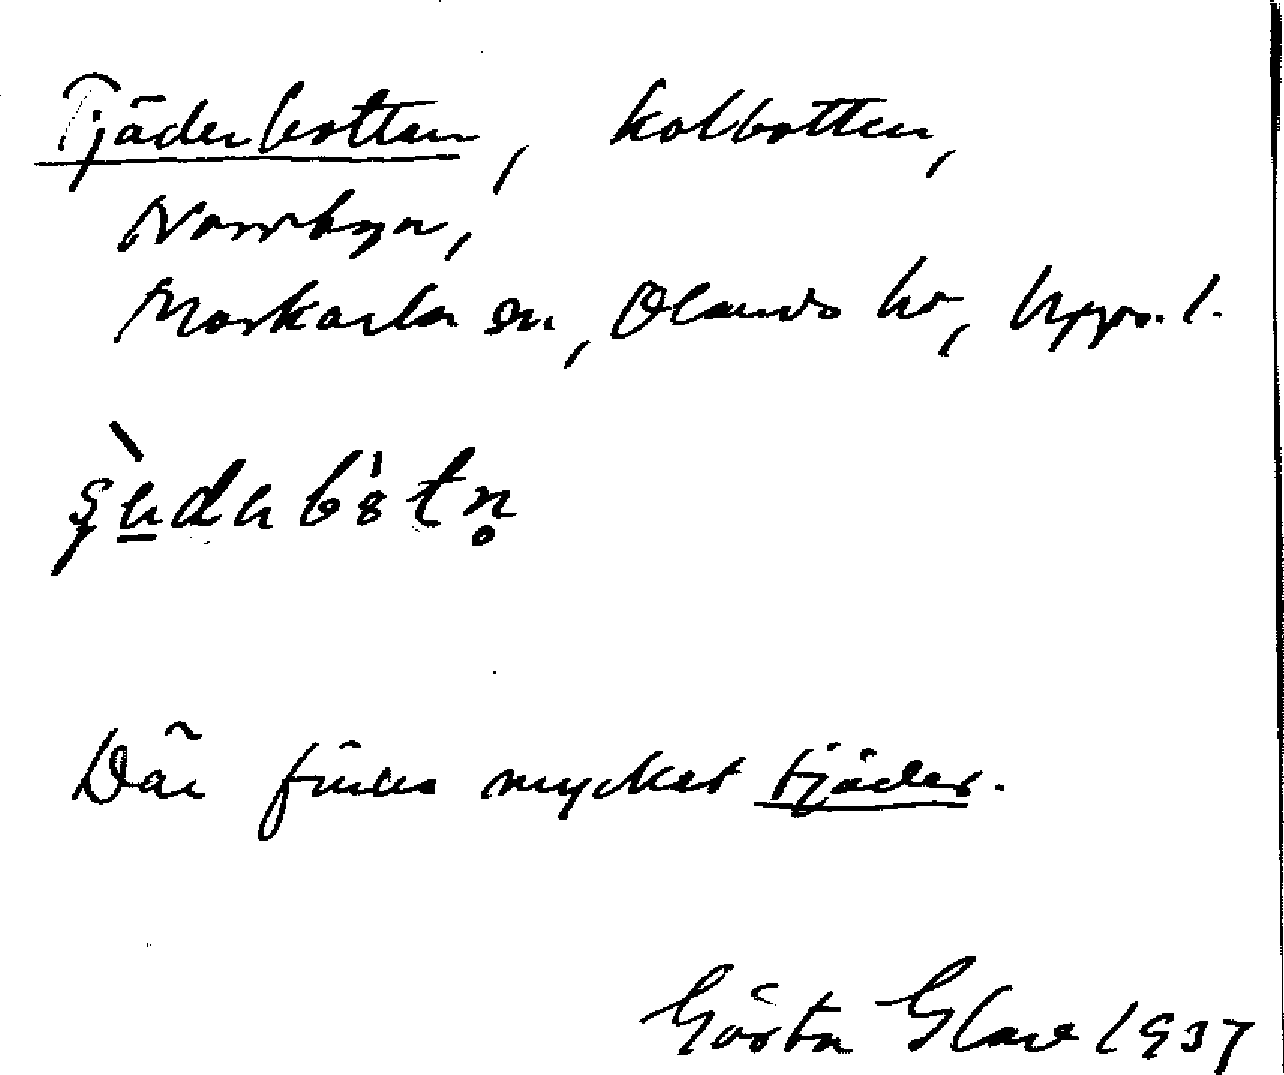 Tjäderbotten, kolbotten,
Norrbyn,
Morkarla sn, Olands hd, Upps. l.
Där finns mycket tjäder.
Gösta Glase 1937